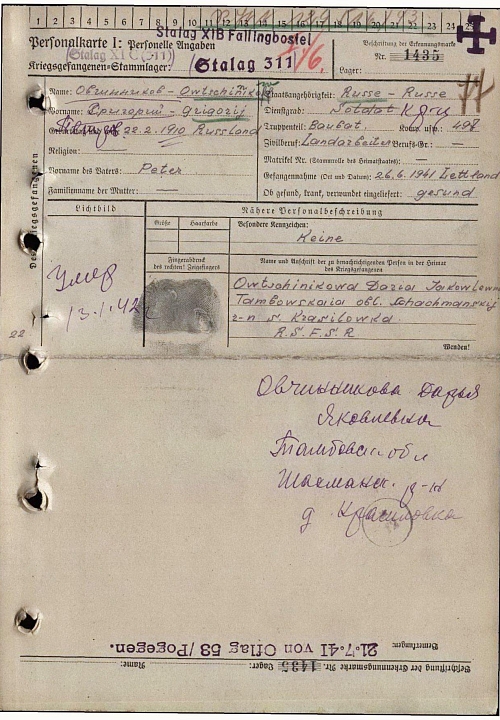 1 2 3 4 5 6 7 8 9 10 11 12 13 14 15 16 17 18 19 20 21 22 23 24 25
Stalag XIB Fallingbostel
Personalkarte I: Personelle Angaben
Beschriftung der Erkennungsmarke
Nr. 1435
Kriegsgefangenen-Stammlager: Stalag 311
Lager:
Des Kriegsgefangenen
Name: Овчинников - Owtschinikow
Staatsangehörigkeit: Russe - Russe
Vorname: Григорий - Grigorij
Dienstgrad: Soldat
Петров
22.2.1910 Russland
Truppenteil: Baubat. Komp. usw.: 498
Religion: —
Zivilberuf: Landarbeiter Berufs-Gr.: —
Matrikel Nr. (Stammrolle des Heimatstaates): —
Vorname des Vaters: Peter
Gefangennahme (Ort und Datum): 26.6.1941 Lettland
Familienname der Mutter: —
Ob gesund, krank, verwundet eingeliefert: gesund
Lichtbild
Nähere Personalbeschreibung
Größe
Haarfarbe
Besondere Kennzeichen:
Keine
Fingerabdruck
des rechten! Zeigefingers
Name und Anschrift der zu benachrichtigenden Person in der Heimat
des Kriegsgefangenen
Умер
13.1.42
Owtschinikowa Daria Jakowlewna
Tambowskaia obl. Schachmanskij
r-n s. Krasilowka
R.S.F.S.R
22
Wenden!
Овчинникова Дарья
Яковлевна
Тамбовская обл
р-н
д. Красиловка
21.7.41 von Oflag 53/Pogegen.
Bemerkungen:
Beschriftung der Erkennungsmarke Nr. 1435 Lager: Name: